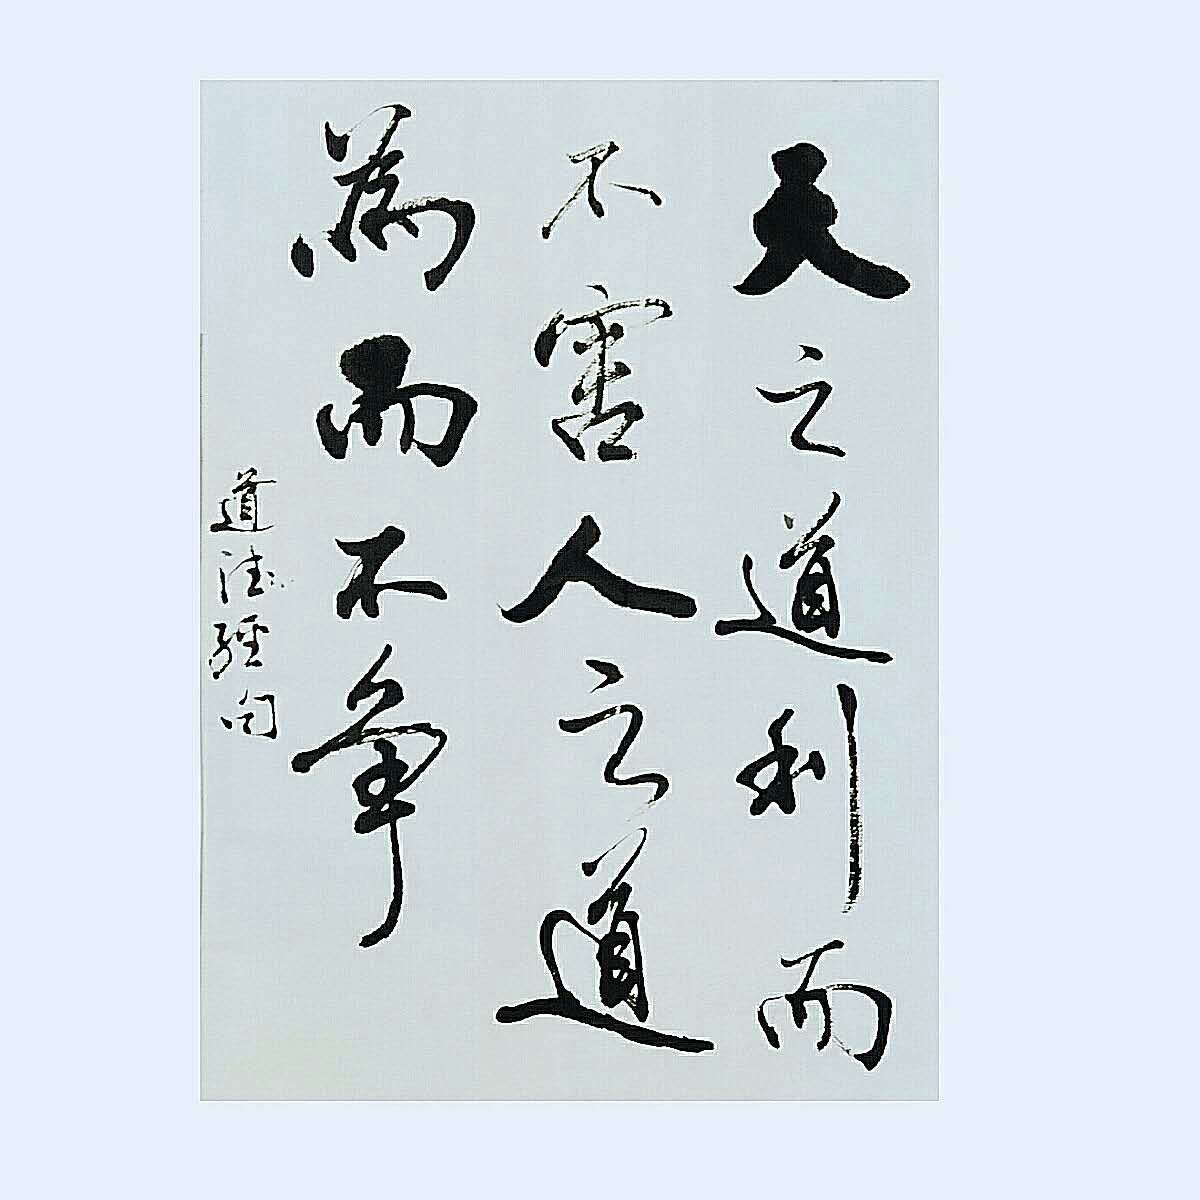 天之道利而
不害人之道
為而不争
道德經句